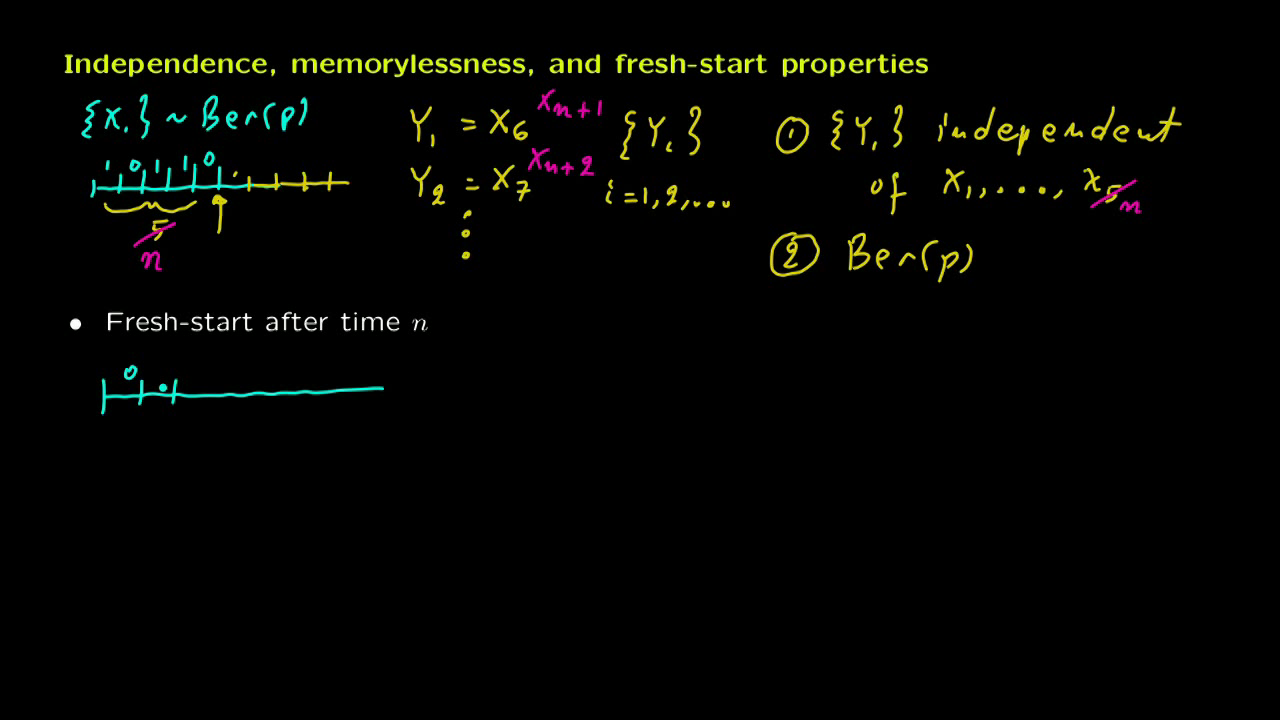 Independence, memorylessness, and fresh-start properties
{Xᵢ} ~ Ber(p)
1 0 1 1 0
5
n
Y₁ = X₆ Xₙ₊₁
Y₂ = X₇ Xₙ₊₂
{Yᵢ}
i = 1, 2, ...
① {Yᵢ} independent
of X₁, ..., X₅ n
② Ber(p)
• Fresh-start after time n
0